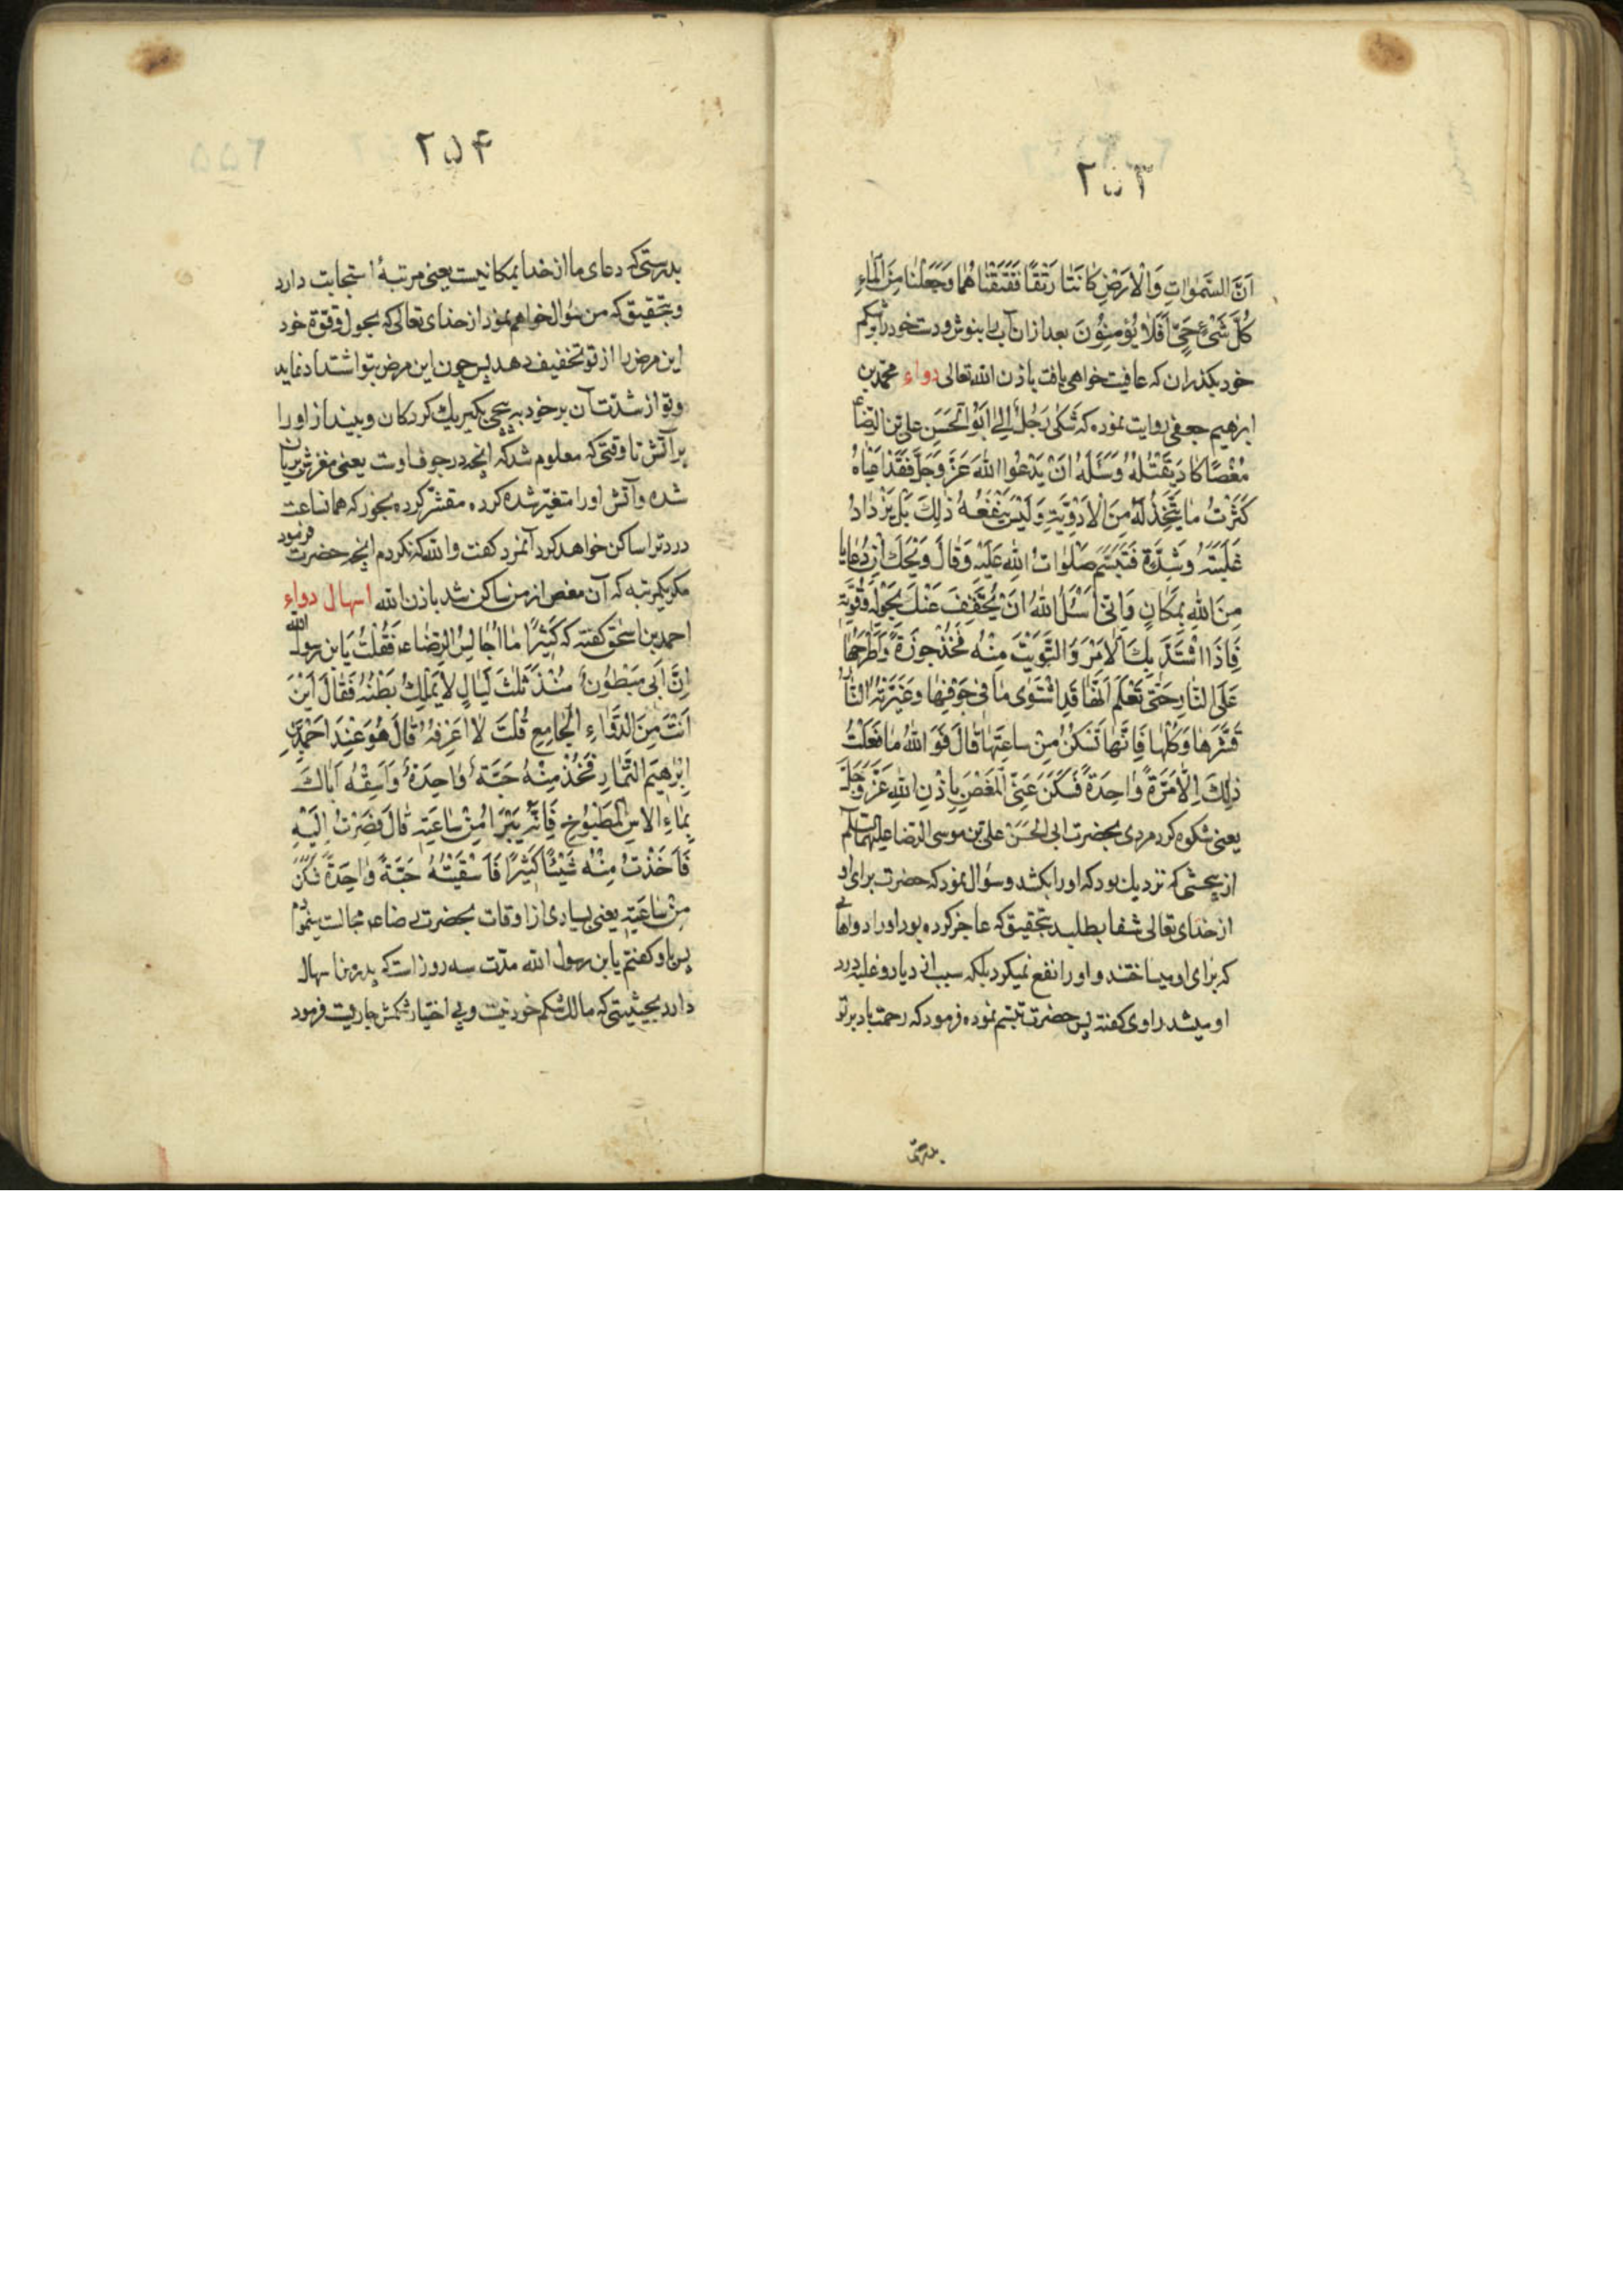 ۲۵۳
اَنَّ السَّمٰوٰاتِ وَالْاَرْضَ كٰانَتٰا رَتْقًا فَفَتَقْنٰاهُمٰا وَجَعَلْنٰا مِنَ الْمٰاءِ
كُلَّ شَیْءٍ حَیٍّ اَفَلٰا یُؤْمِنُونَ بعد ازان آب را بنوش و دست خود را بر شکم
خود بگذران که عافیت خواهی یافت باذن الله تعالی دواء محمد بن
ابرهیم جعفی روایت نموده که شَکٰی رَجُلٌ اِلٰی اَبُو الْحَسَنِ عَلِیّ بْنِ الرِّضَا ع
مَغْصًا کٰادَ یَقْتُلُهُ وَسَئَلَهُ اَنْ یَدْعُوَ اللهَ عَزَّ وَجَلَّ فَقَدْ اَعْیٰاهُ
کَثْرَتُ مٰا یَتَّخِذُ لَهُ مِنَ الْاَدْوِیَةِ وَلَیْسَ یَنْفَعُهُ ذٰلِكَ بَلْ یَزْدٰادُ
غَلَبَتُهُ وَشِدَّة فَتَبَسَّمَ صَلَوٰاتُ اللهِ عَلَیْهِ وَقٰالَ وَیْحَكَ اِنَّ دُعٰاءَنٰا
مِنَ اللهِ بِمَکٰانٍ وَاِنّی اَسْئَلُ اللهَ اَنْ یُخَفِّفَ عَنْكَ بِحَوْلِهِ وَقُوَّتِهِ
فَاِذَا اشْتَدَّ بِكَ الْاَمْرُ وَالْتَوَیْتَ مِنْهُ فَخُذْ جَوْزَةً وَاطْرَحْهٰا
عَلَی النّٰارِ حَتّٰی تَعْلَمَ اَنَّهٰا قَدِ اشْتَوٰی مٰا فِی جَوْفِهٰا وَغَیَّرَتْهُ النّٰارُ
قَشِّرْهٰا وَکُلْهٰا فَاِنَّهٰا تَسْکُنُ مِنْ سٰاعَتِهٰا قٰالَ فَوَ اللهِ مٰا فَعَلْتُ
ذٰلِكَ اِلّٰا مَرَّةً وٰاحِدَةً فَسَکَنَ عَنِّی الْمَغْصُ بِاِذْنِ اللهِ عَزَّ وَجَلَّ
یعنی شکوه کرد مردی بحضرت ابی الحَسَن علی بن موسی الرضا علیهما السلام
از پیچشی که نزدیك بود که اورا بکشد و سؤال نمود که حضرت برای او
از خدای تعالی شفا بطلبد بتحقیق که عاجز کرده بود اورا دواهائی
که برای او میساختند و اورا نفع نمیکرد بلکه سبب زیاد و غلبه درد
او میشد راوی گفته پس حضرت تبسم نموده فرمود که رحمت باد بر تو
بدرستی
۲۵۴
بدرستی که دعای ما از خدا بمکانیست یعنی مرتبهٔ استجابت دارد
و بتحقیق که من سؤال خواهم نمود از خدای تعالی که بحول و قوة خود
این مرض را از تو تخفیف دهد پس چون این مرض بتو اشتداد نماید
و تو از شدّت آن بر خود بپیچی بگیر یك گردکان و بینداز اورا
بر آتش تا وقتی که معلوم شد که آنچه در جوف اوست یعنی مغزش بریان
شده و آتش اورا متغیّر شده کرده مقشّر کرده بخور که همانساعت
درد ترا ساکن خواهد کرد آنمرد گفت والله که نکردم آنچه حضرت فرمود
مگر یکمرتبه که آن مغص از من ساکن شد باذن الله اسهال دواء
احمد بن اسحق گفته که کَثیرًا مٰا اُجٰالِسُ الرِّضٰاء ع فَقُلْتُ یَابن رسول الله
اِنَّ اَبی مَبْطُونٌ مُنْذُ ثَلٰثَ لَیٰالٍ لٰا یَمْلِكُ بَطْنَهُ فَقٰالَ اَیْنَ
اَنْتَ مِنَ الدَّوٰاءِ الْجٰامِعِ قُلْتُ لٰا اَعْرِفُهُ قٰالَ هُوَ عِنْدَ اَحْمَدِ بْنِ
اِبْرٰهیمَ التَّمّٰارِ فَخُذْ مِنْهُ حَبَّةً وٰاحِدَةً وَاَسْقِهِ اَبٰاكَ
بِمٰاءِ الْاٰسِ الْمَطْبُوخِ فَاِنَّهُ یَبْرَأُ مِنْ سٰاعَتِهِ قٰالَ فَصِرْتُ اِلَیْهِ
فَاَخَذْتُ مِنْهُ شَیْئًا کَثیرًا فَاَسْقَیْتُهُ حَبَّةً وٰاحِدَةً فَسَکَنَ
مِنْ سٰاعَتِهِ یعنی بسیاری از اوقات بحضرت رضا ع مجالست مینمودم
پس باو گفتم یابن رسول الله مدّت سه روز است که پدر من اسهال
دارد بحیثیتی که مالك شکم خود نیست و بی اختیار شکمش جاریست فرمود